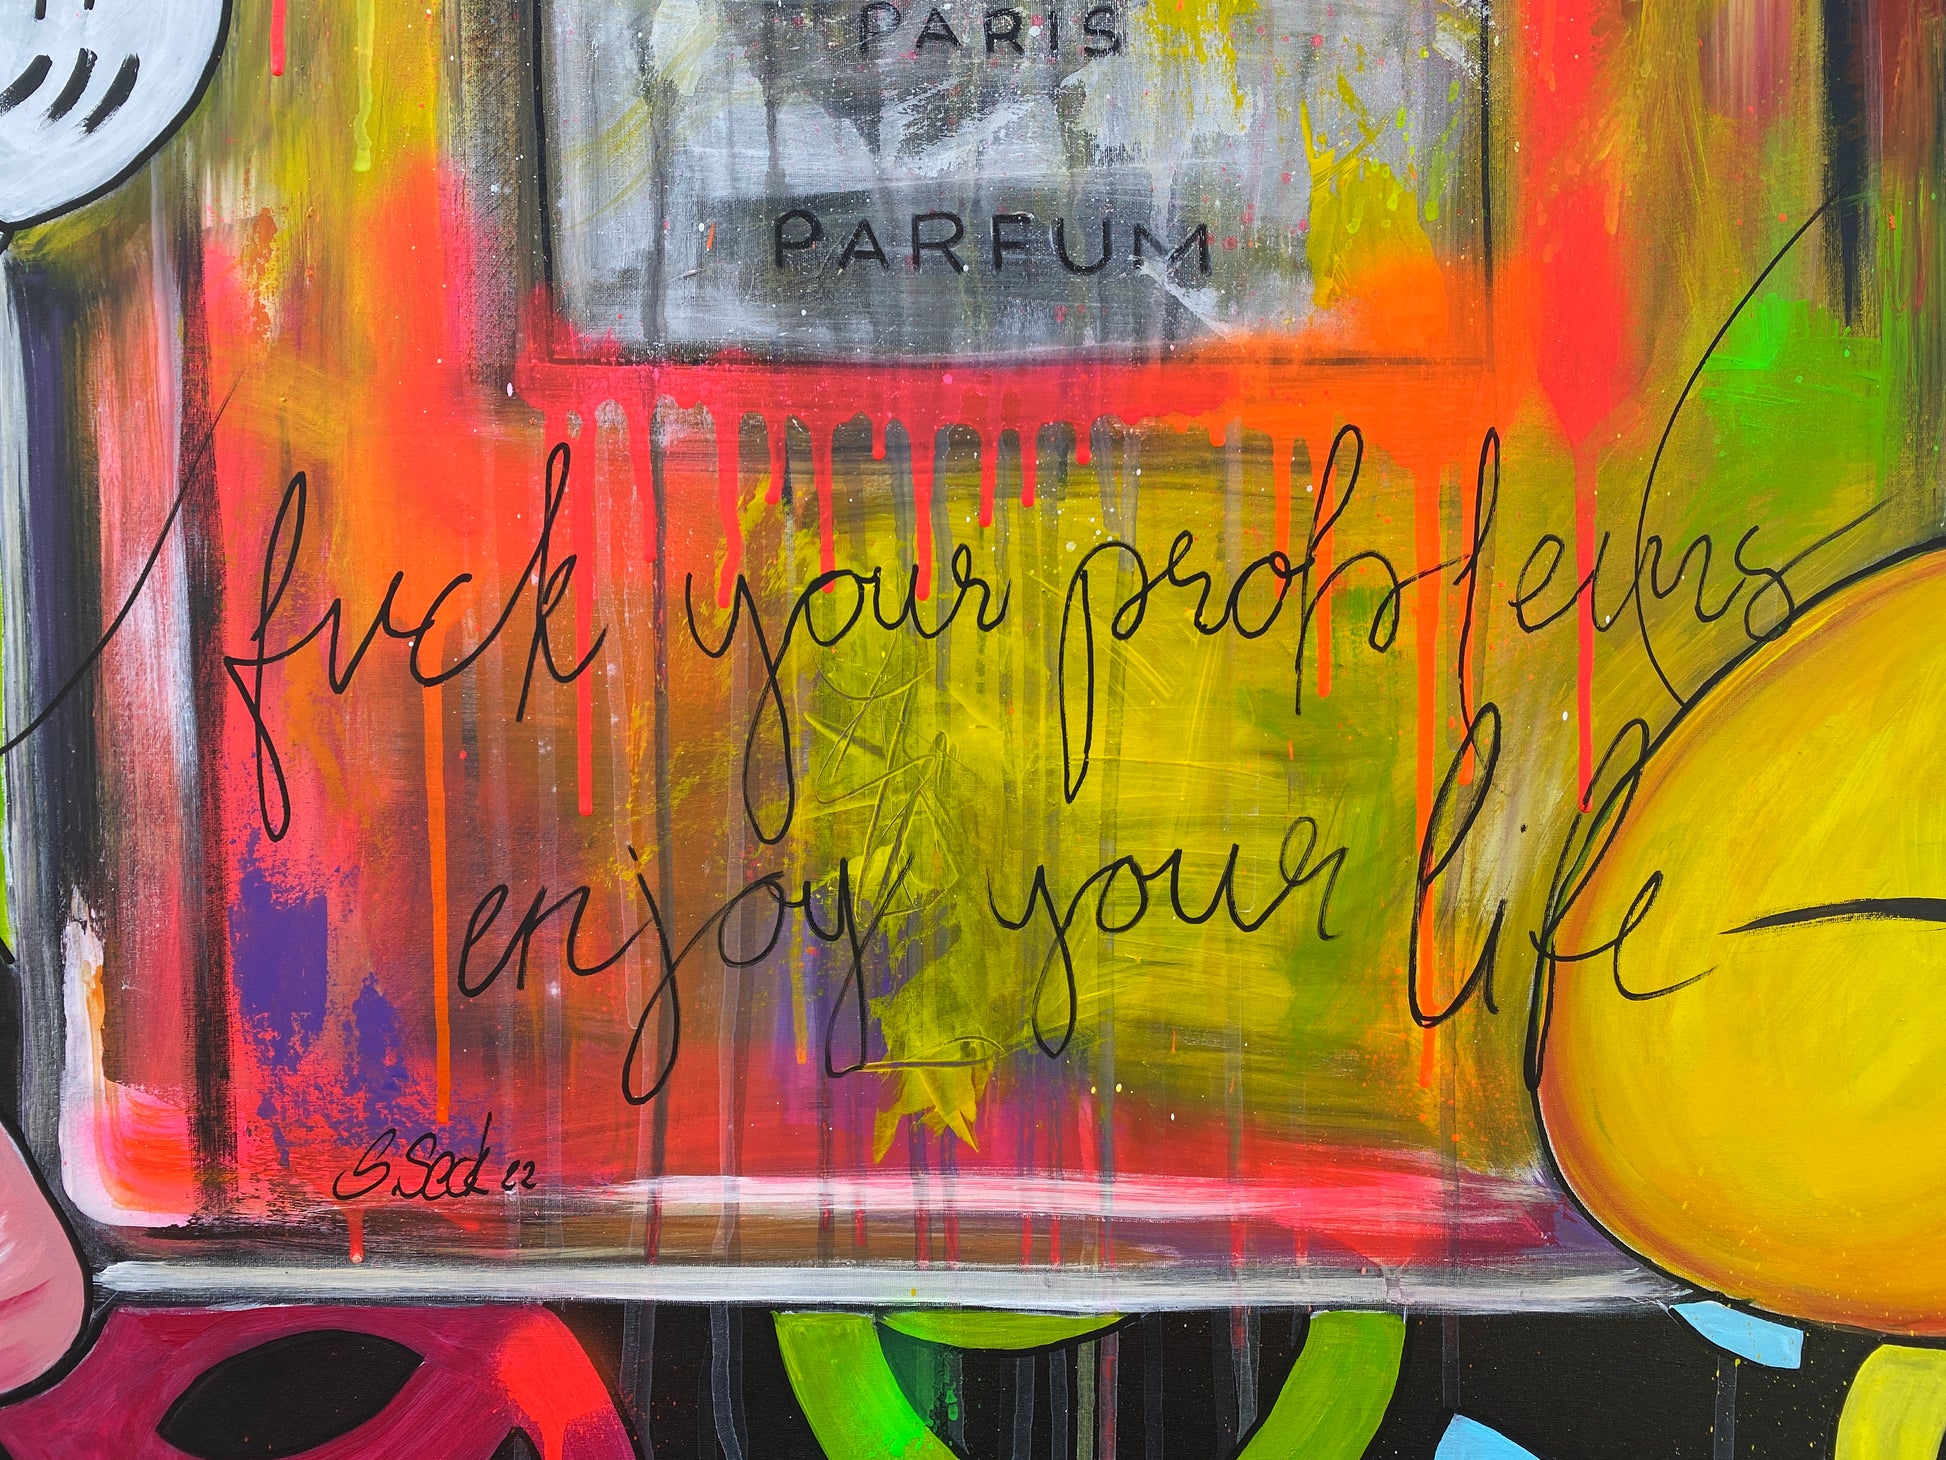 PARIS
PARFUM
fuck your problems
enjoy your life
S.Seck 22